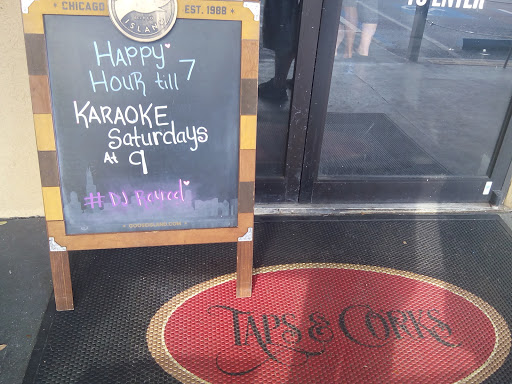 TO ENTER
CHICAGO EST. 1988
ISLAND
HAPPY
HOUR till 7
KARAOKE
Saturdays
AT 9
#DJ
GOOSEISLAND.COM
TAPS & CORKS